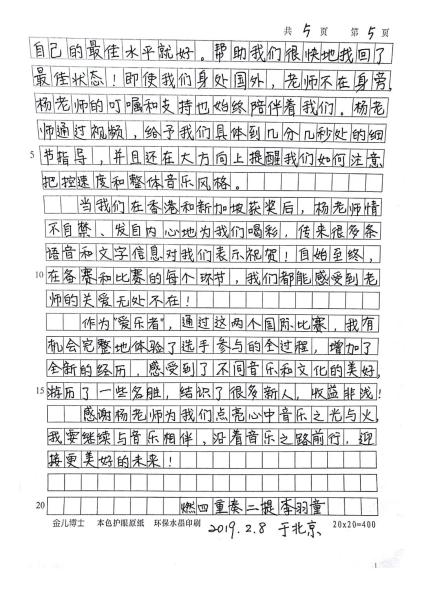 共 5 页 第 5 页
自己的最佳水平就好。帮助我们很快地找回了
最佳状态！即使我们身处国外，老师不在身旁，
杨老师的叮嘱和支持也始终陪伴着我们。杨老
师通过视频，给予我们具体到几分几秒处的细
5 节指导，并且还在大方向上提醒我们如何注意
把控速度和整体音乐风格。
当我们在香港和新加坡获奖后，杨老师情
不自禁、发自内心地为我们喝彩，传来很多条
语音和文字信息对我们表示祝贺！自始至终，
10 在备赛和比赛的每个环节，我们都能感受到老
师的关爱无处不在！
作为“爱乐者”，通过这两个国际比赛，我有
机会完整地体验了选手参与的全过程，增加了
全新的经历，感受到了不同音乐和文化的美好。
15 游历了一些名胜，结识了很多新人，收益非浅！
感谢杨老师为我们点亮心中音乐之光与火。
我要继续与音乐相伴、沿着音乐之路前行，迎
接更美好的未来！
20 燃四重奏二提李羽童
金儿博士 本色护眼原纸 环保水墨印刷 2019.2.8 于北京 20x20=400
1